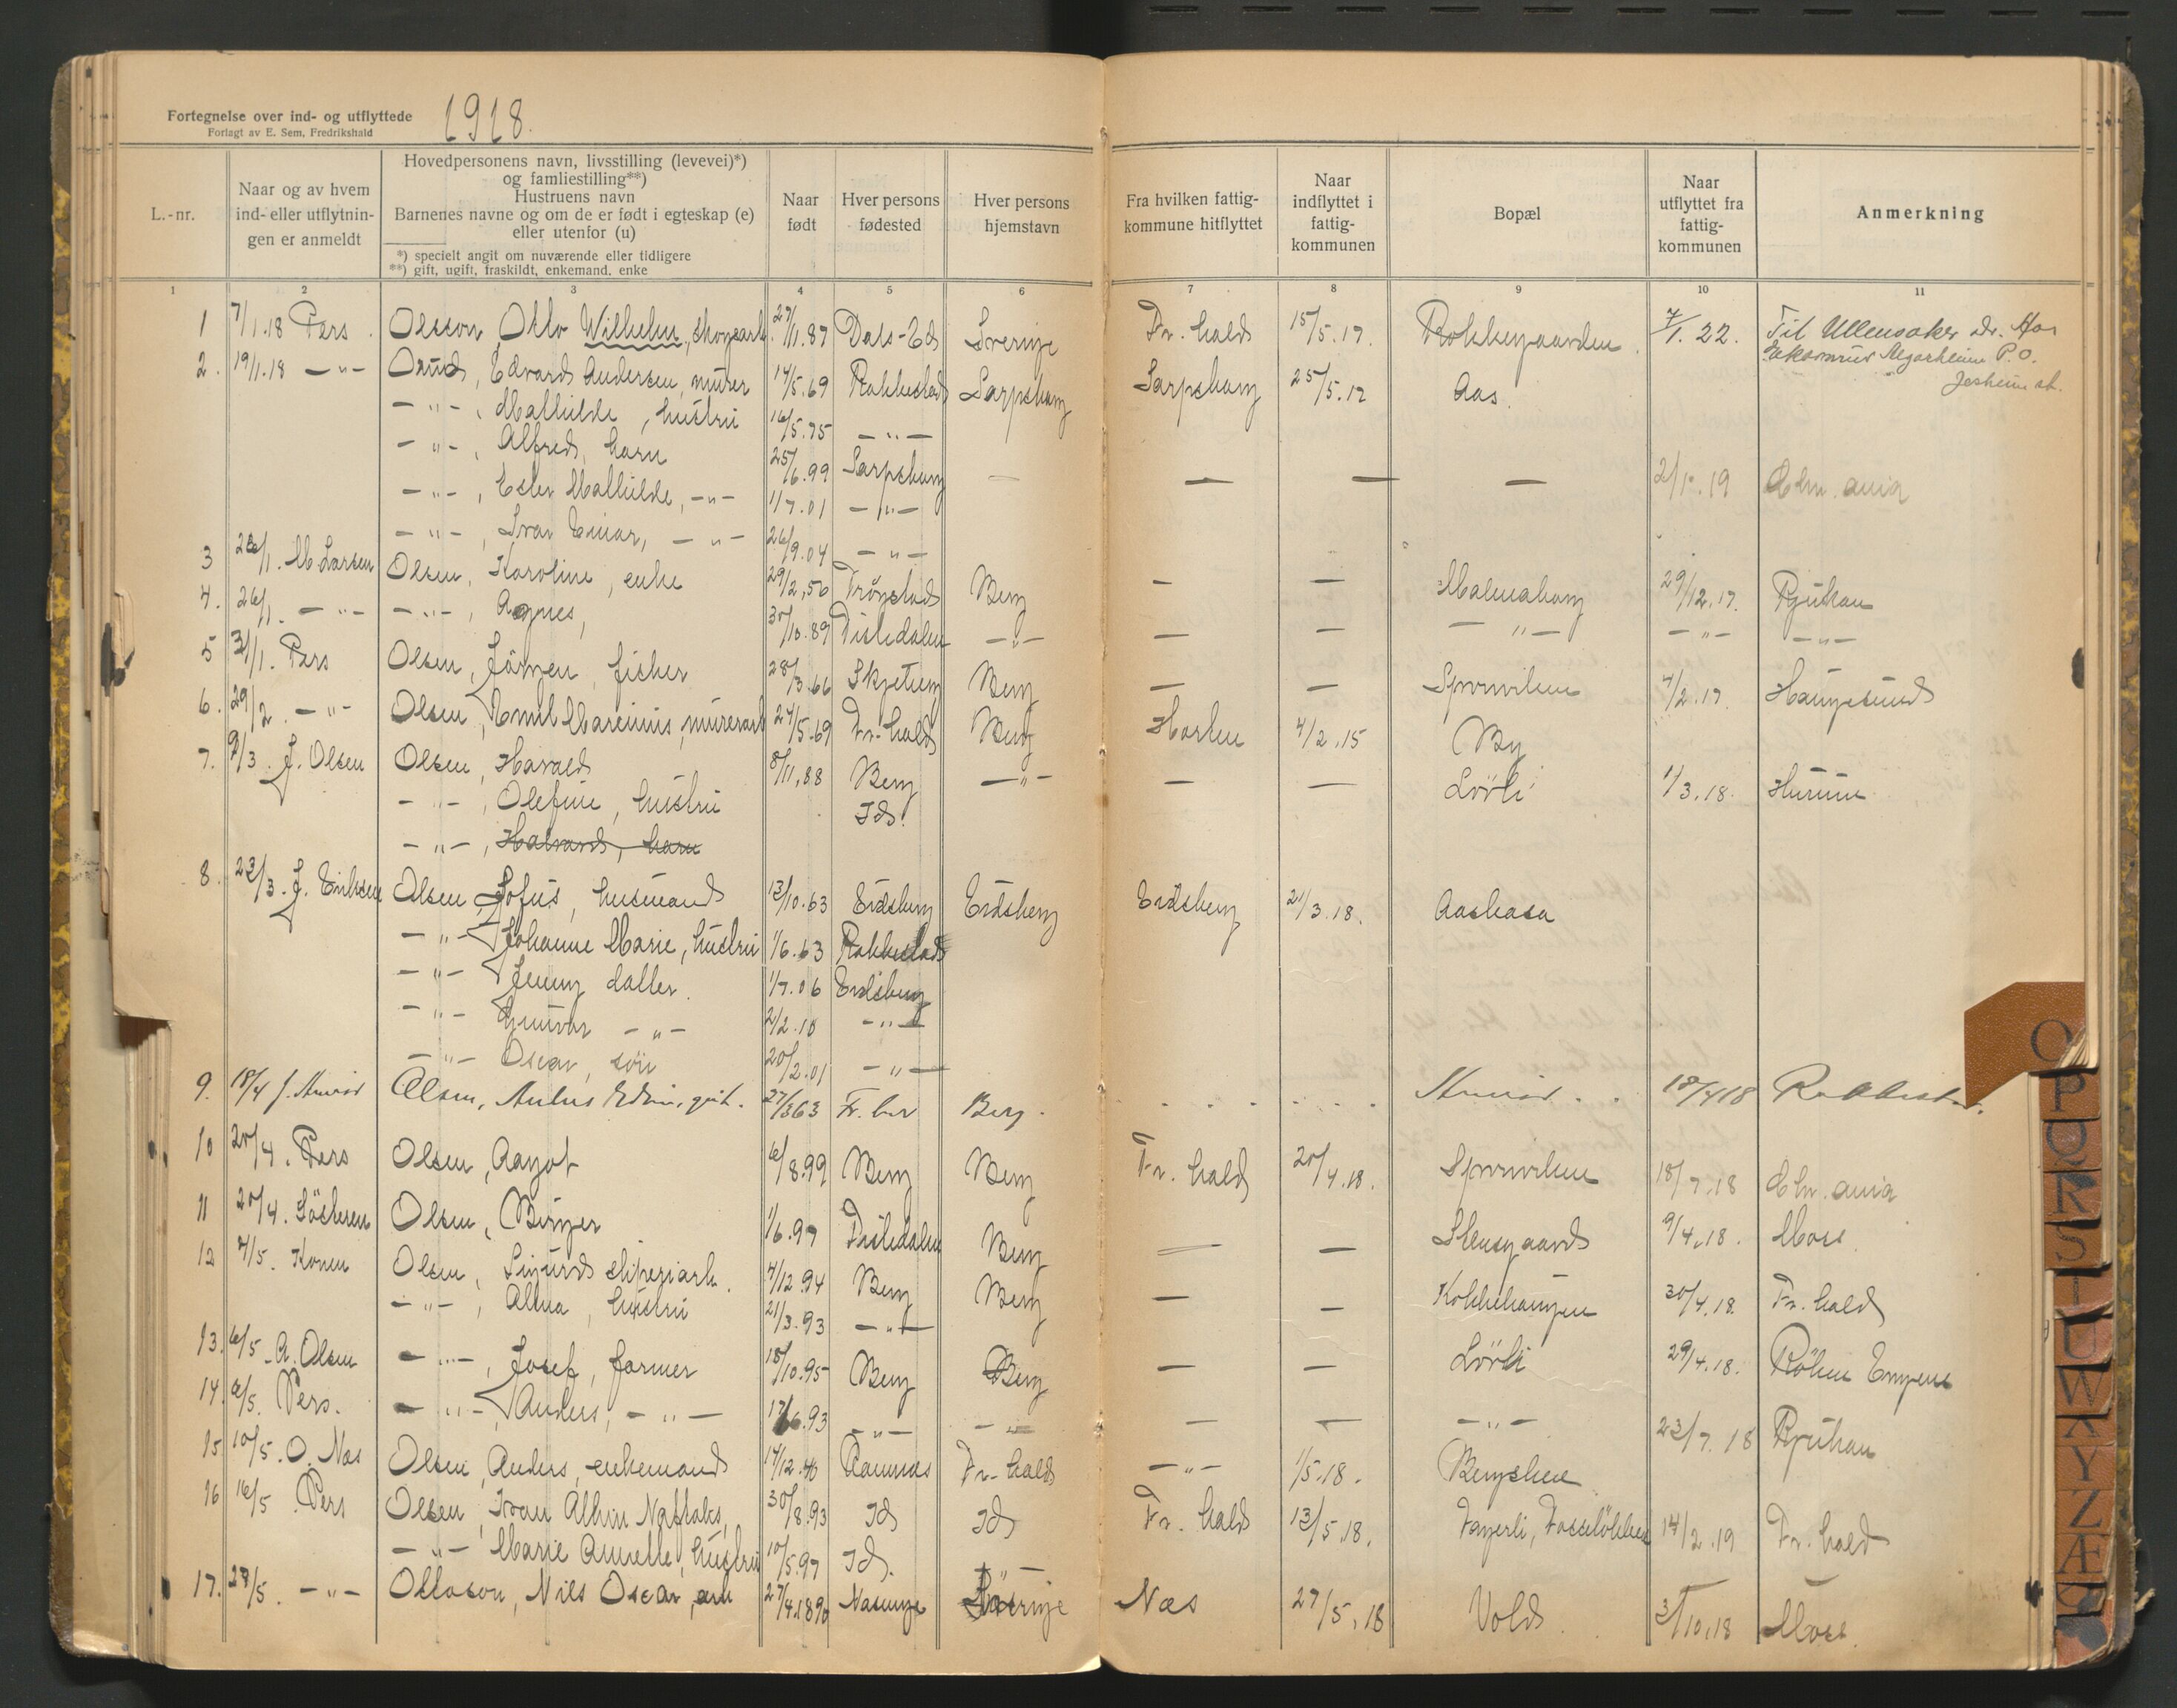 Fortegnelse over ind- og utflyttede
Forlagt av E. Sem, Fredrikshald
1918.
L.-nr.
Naar og av hvem
ind- eller utflytnin-
gen er anmeldt
Hovedpersonens navn, livsstilling (levevei)*)
og famliestilling**)
Hustruens navn
Barnenes navne og om de er født i egteskap (e)
eller utenfor (u)
*) specielt angit om nuværende eller tidligere
**) gift, ugift, fraskildt, enkemand, enke
Naar
født
Hver persons
fødested
Hver persons
hjemstavn
Fra hvilken fattig-
kommune hitflyttet
Naar
indflyttet i
fattig-
kommunen
Bopæl
Naar
utflyttet fra
fattig-
kommunen
Anmerkning
1 2 3 4 5 6 7 8 9 10 11
1 7/1.18 Pers. Olsson, Otto Wilhelm, skogsarb. 27/11.87 Dals-Ed Sverige Fr.hald 15/5.17. Rokkegaarden 4/1.22. Til Ullensaker
Jesheim st.
2. 19/1.18 -"- Edvard Andersen, murer 14/5.69 Rakkestad Sarpsborg Sarpsborg 25/5.17 Aas.
-"-, Mathilde, hustru 16/5.75 -"-
-"-, Alfred, barn 25/6.99 Sarpsborg — — — — 2/1.19 Chr.ania
-"-, Ester Mathilde, -"- 1/7.01 -"-
-"-, Ivar Einar, -"- 26/9.04 -"-
3 26/1. M. Larsen Olsen, Karoline, enke 29/2.50 Trøgstad Berg — — 29/12.17. Rjukan
4. 26/1. -"- -"-, Agnes, 30/10.89 Tistedalen -"- — — -"- -"- -"-
5 31/1. Pers Olsen, Jörgen, fisker 28/3.66 Skjeberg Berg — — Sponviken 4/2.17. Haugesund
6. 29/2. -"- Olsen, Emil Marenius, murerarb 24/5.69 Fr.hald Berg Horten 4/2.15 By
7. 9/3. J. Olsen Olsen, Harald 8/11.88 Berg -"- — — Lövli 1/3.18. Hurum
-"-, Olefine, hustru Id.
-"-, Halvard, barn
8. 23/3. J. Eriksen Olsen, Sofus, husmand 13/10.63 Eidsberg Eidsberg Eidsberg 21/3.18. Aaskasa
-"- Johanne Marie, hustru 1/6.63 Rakkestad
-"- Jenny datter 1/7.06 Eidsberg
-"- Gunvor -"- 2/2.10 -"-
-"- Oscar, sön 20/2.01 -"-
9. 18/4 J. Olsen, Edvin, 27/3 63 Berg. 18/4 18 Rakkestad.
10 20/4. Pers Olsen, Aagot 6/8.99 Berg Berg Fr.hald 20/4.18. Sponviken 18/7.18 Chr.ania
11 20/4. Olsen, Birger 1/6.97 Tistedalen Berg — — Stensgaard 9/4.18. Moss.
12 4/5. Konen Olsen, Sigurd sliperiarb. 4/12.94 Berg Berg — — Kokkehaugen 30/4.18. Fr.hald
-"-, Alma, hustru 21/3.93 -"-
13. 6/5. A. Olsen -"-, Josef, farmer 18/10.95 Berg Berg — — Lövli 29/4.18. Röken
14. 6/5. Pers. -"-, Anders, -"- 17/6.93 -"- -"- — — -"- 23/7.18 Rjukan
15 10/5. O. Næs Olsen, Anders, enkemand 14/12.40 Fr.hald -"- 1/5.18.
16 16/5. Pers Olsen, Ivan Albin 30/8.93 Id Id Fr.hald 13/5.18. Fagerli, Fosseløkken 14/2.19 Fr.hald
-"- Marie Annette, hustru 10/5.97 Id.
17. 28/5. -"- Ottoson, Nils Oscar, arb 27/4.1890 Nasunge Sverige Næs 27/5.18 Vold 31/10.18 Moss.
O
P
Q
R
S
T
U
W
X
Y
Z
Æ
Ø